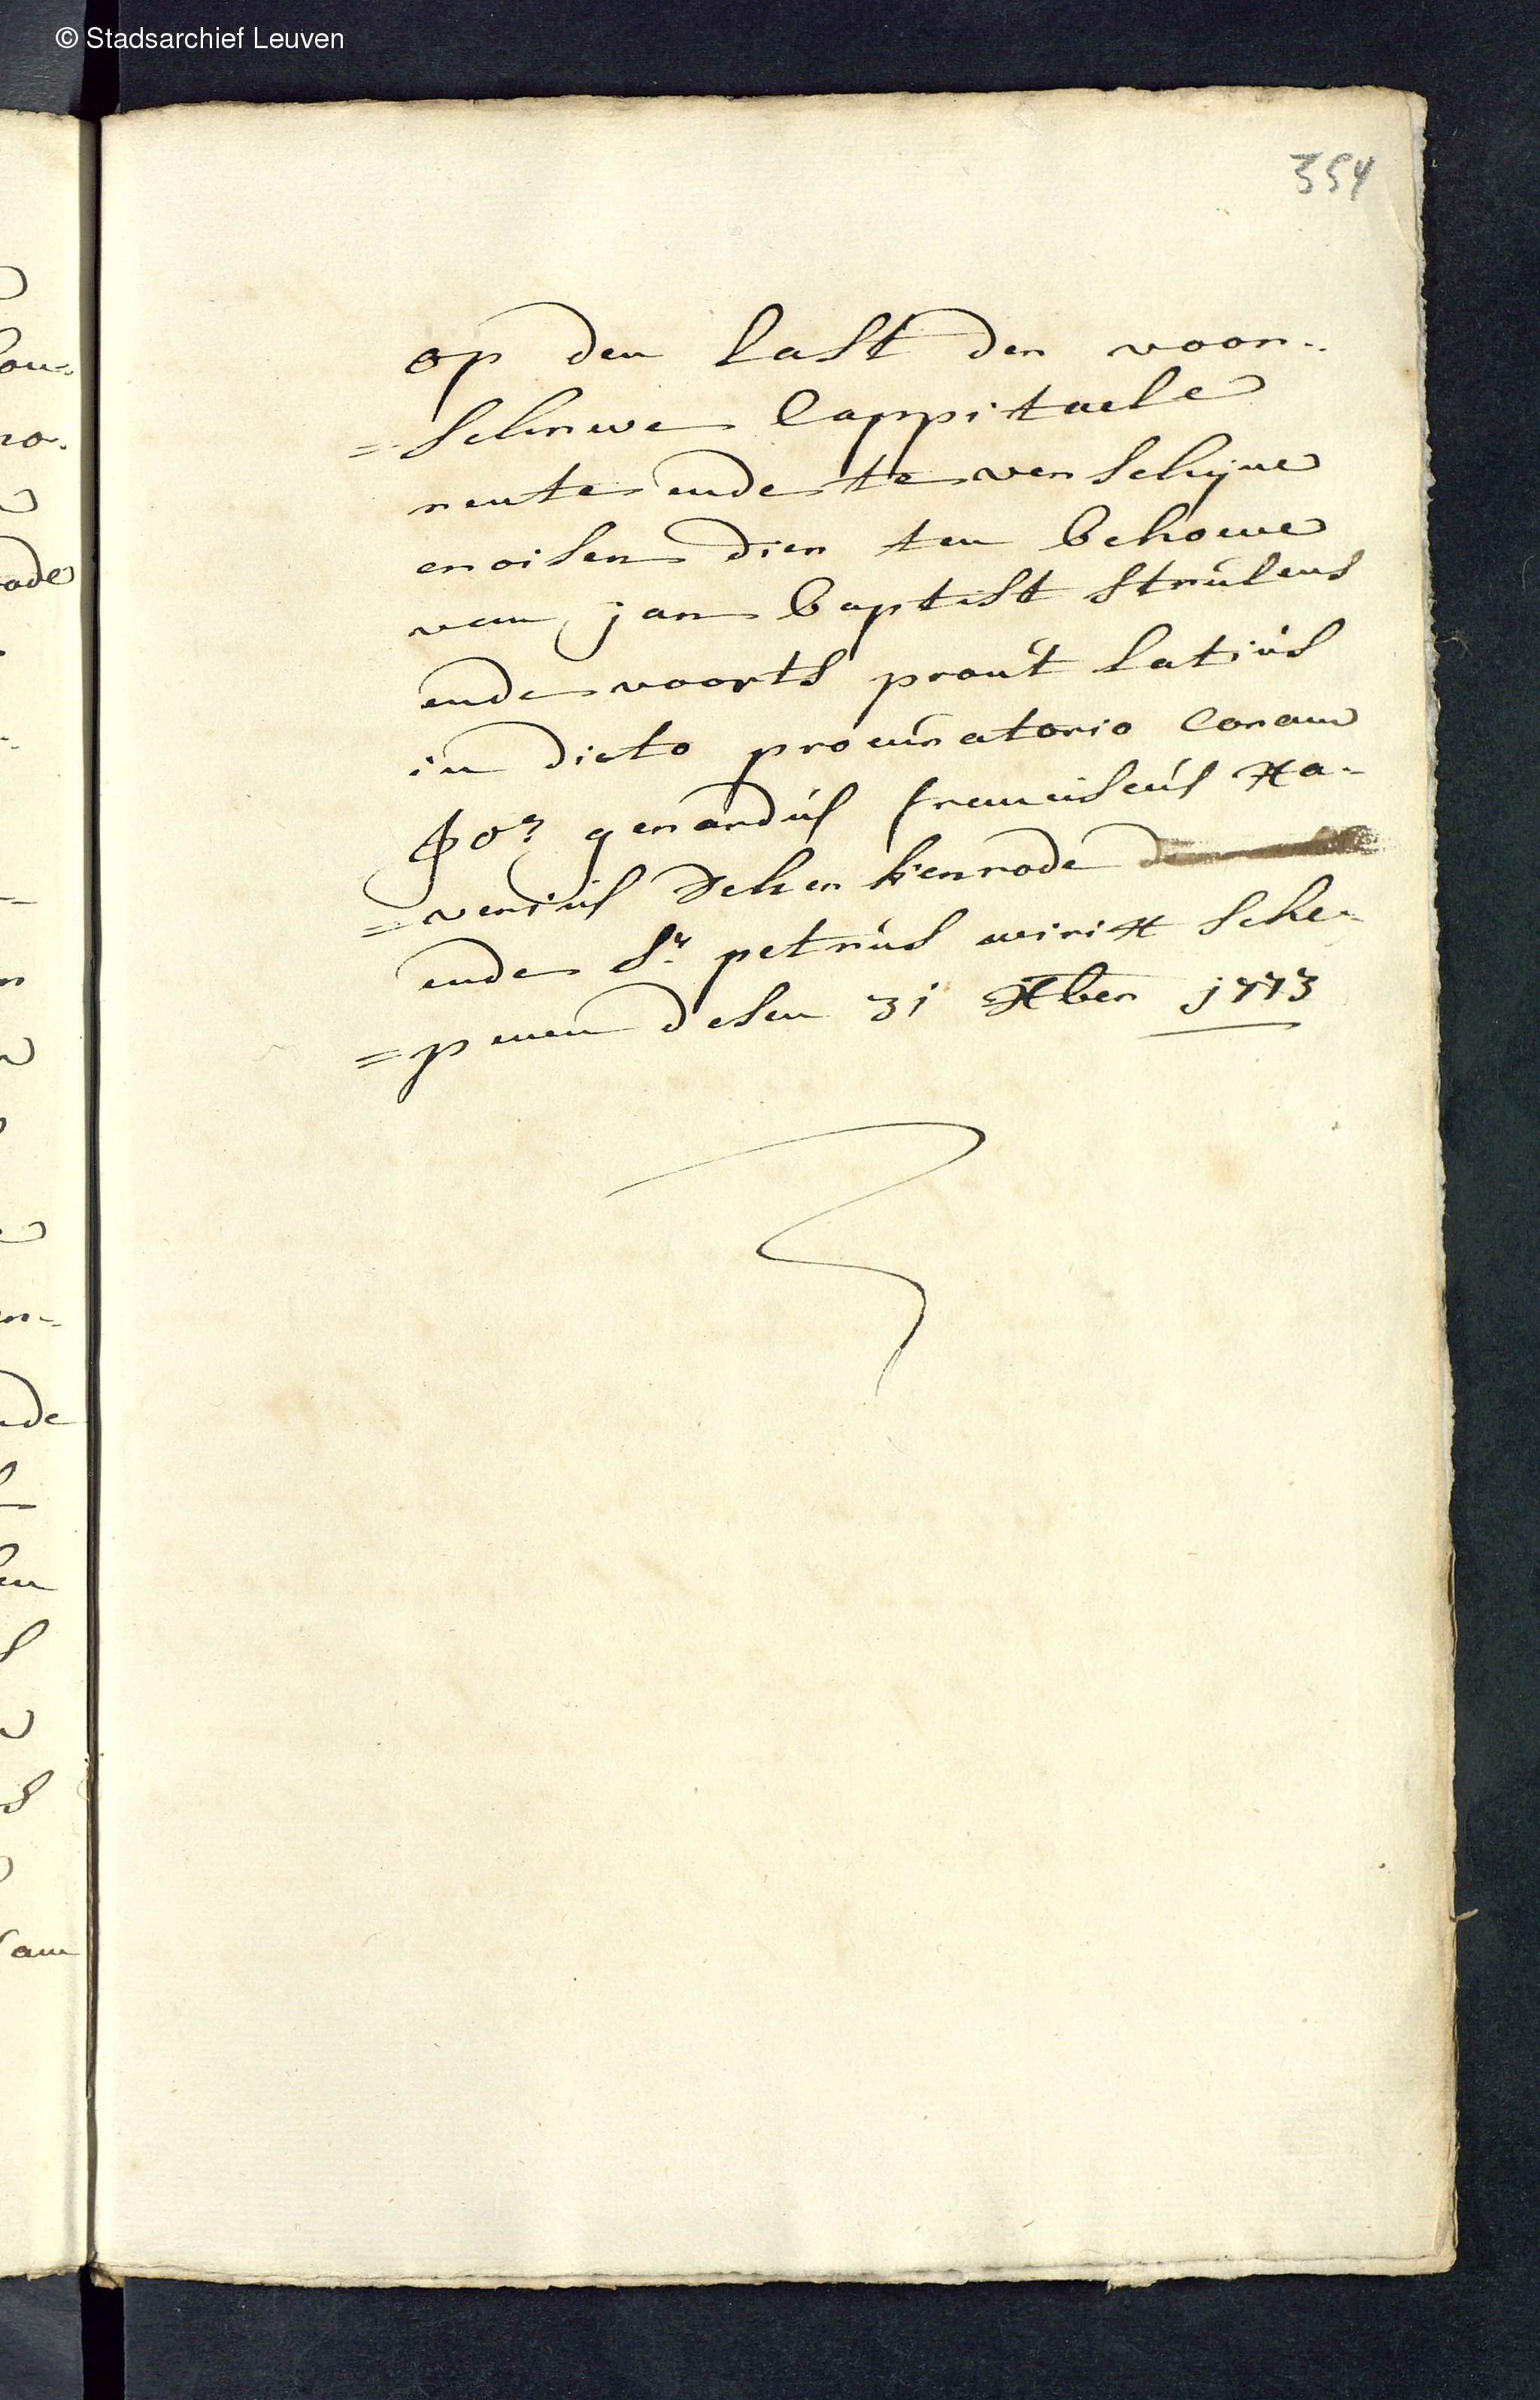 © Stadsarchief Leuven
354
op den last der voor-
=schreve Cappitaele
rente ende te verschyne
croisen dier ten behoeve
van jan baptist strúlens
ende voorts proút latiús
in dicto procúratorio Coram
gerardús franciscús Xa-
=veriús Vekenkenrode
ende Sr. petrús wirix sche-
=penen desen 31 Xber 1773
ou-
ro.
ode
de
am